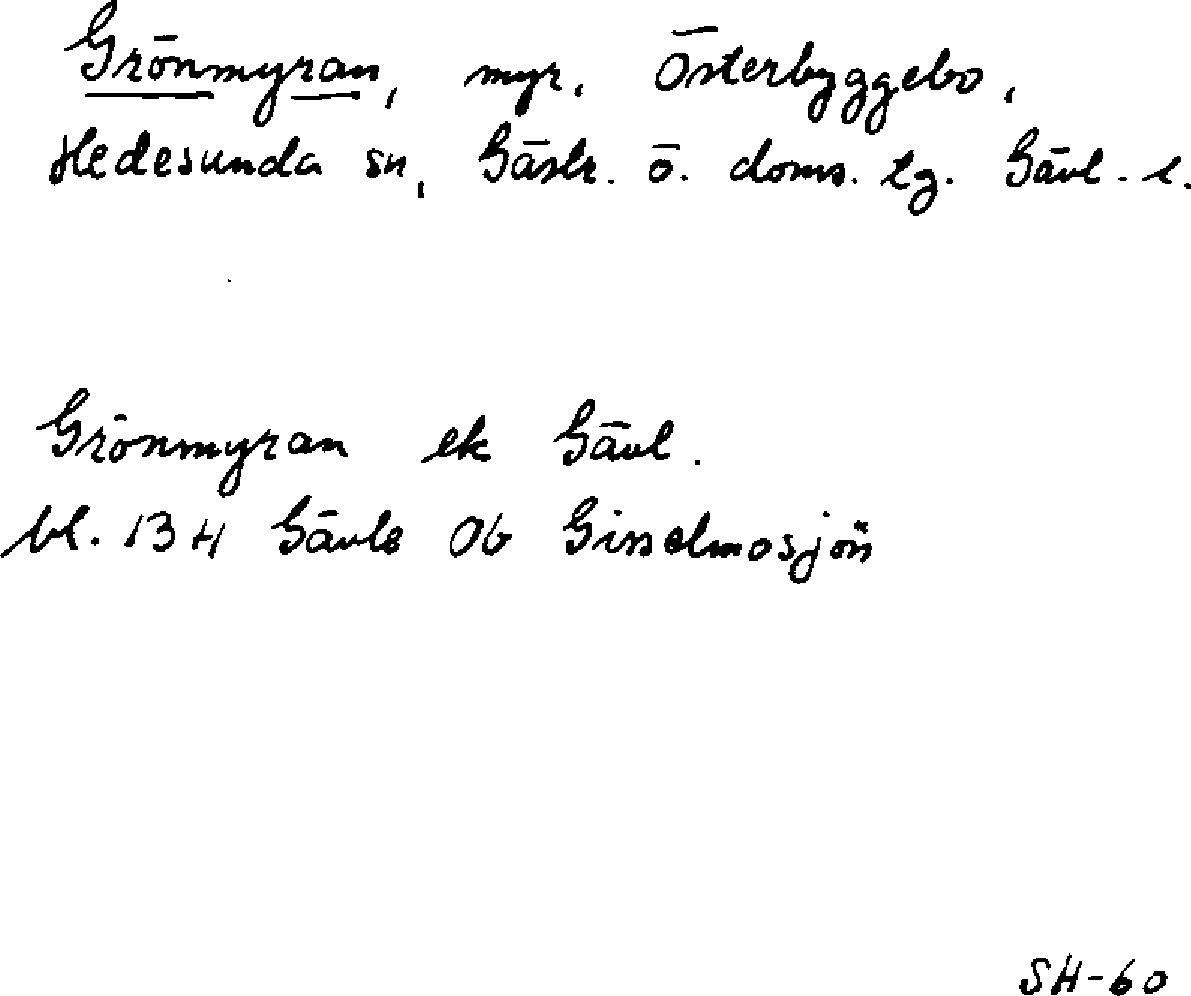 Grönmyran, myr. Österbyggebo,
Hedesunda sn, Gästr. ö. doms. tg. Gävl. l.
Grönmyran ek Gävl.
bl. 13 H Gävle Ob Gisselmosjön
SH-60